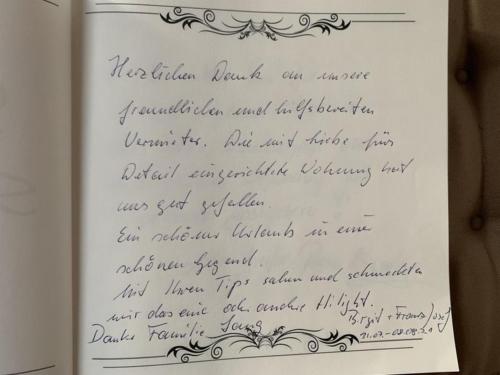 Herzlichen Dank an unsere
freundlichen und hilfsbereiten
Vermieter. Die mit Liebe fürs
Detail eingerichtete Wohnung hat
uns gut gefallen.
Ein schöner Urlaub in einer
schönen Gegend.
Mit Ihren Tips sahen und schmeckten
wir das eine oder andre Hilight.
Birgit + Franz Josef
Danke Familie
31.07. - 08.08.21